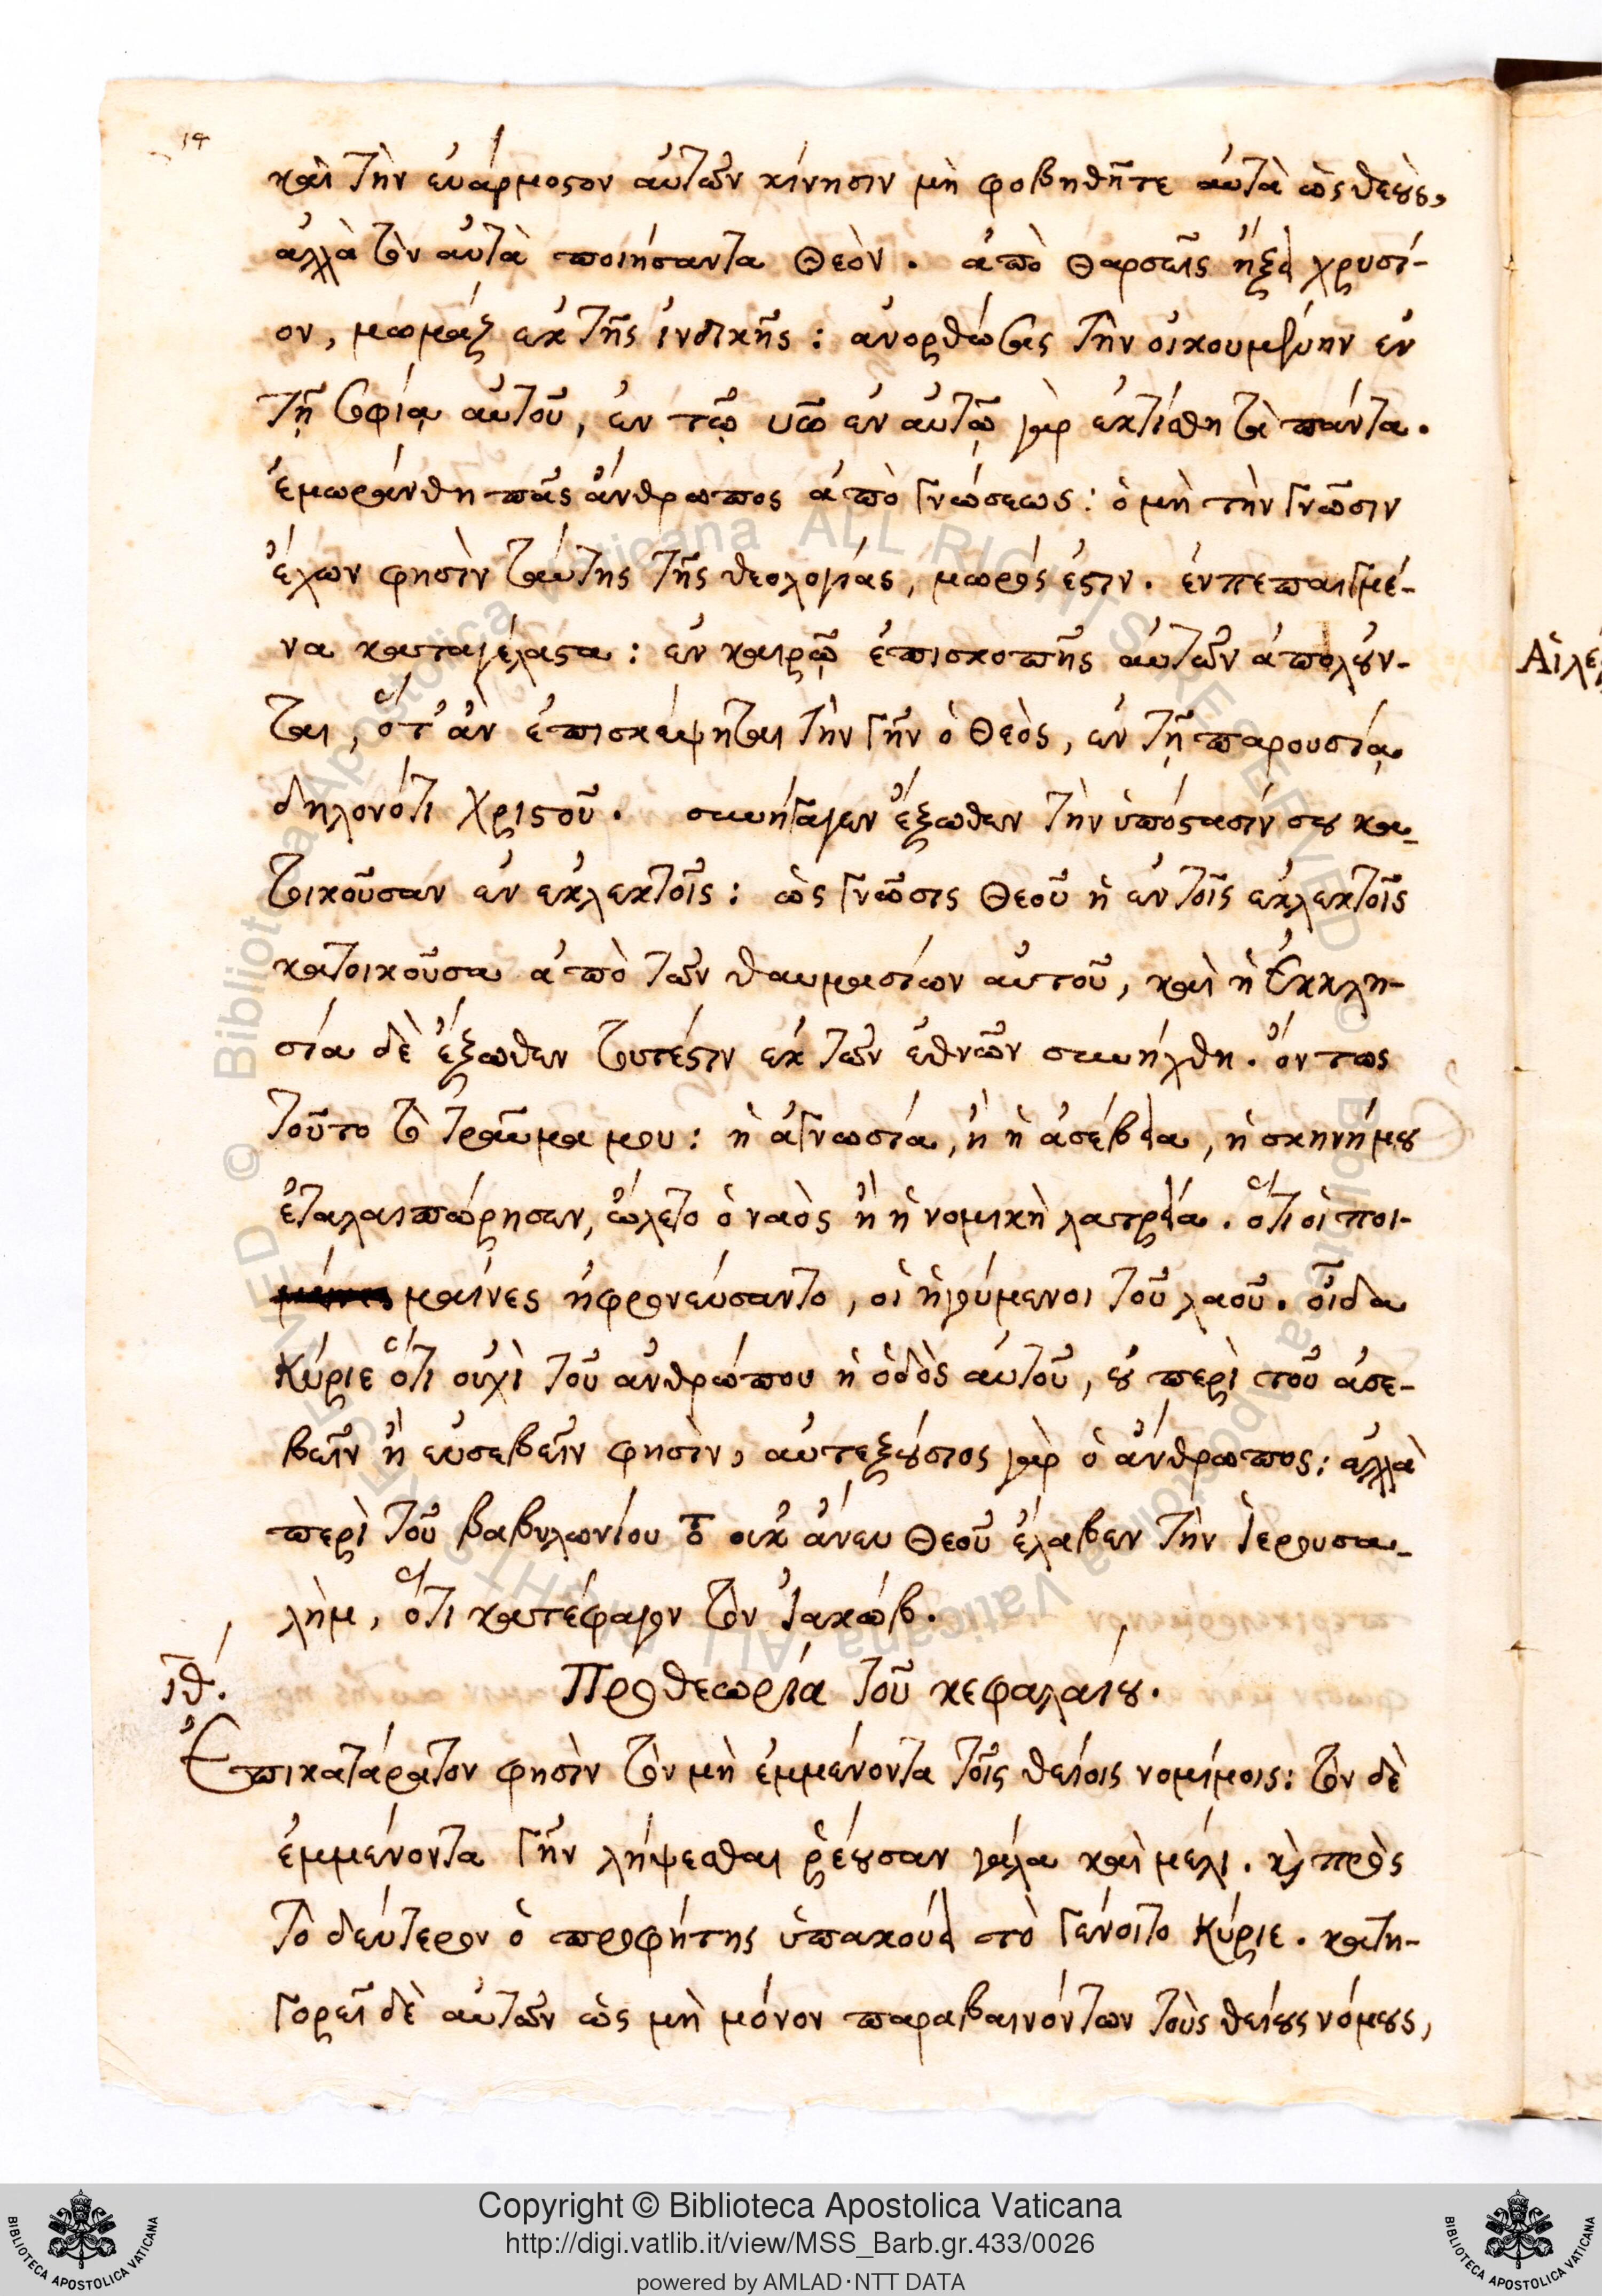 14
καὶ τὴν εὐάρμοστον αὐτῶν κίνησιν μὴ φοβηθῆτε αὐτὰ ὡς θεοὺς,
ἀλλὰ τὸν αὐτὰ ποιήσαντα Θεὸν. ἀπὸ Θαρσεῖς ἥξει χρυσί-
ον, μωμὰζ ἐκ τῆς ἰνδικῆς: ἀνορθώσας τὴν οἰκουμένην ἐν
τῇ σοφίᾳ αὐτοῦ, ἐν τῷ υἱῷ ἐν αὐτῷ γὰρ ἐκτίσθη τὰ πάντα.
ἐμωράνθη πᾶς ἄνθρωπος ἀπὸ γνώσεως: ὁ μὴ τὴν γνῶσιν
ἔχων φησὶν ταύτης τῆς θεολογίας, μωρός ἐστιν. ἐνπεπαιγμέ-
να καταγέλαστα: ἐν καιρῷ ἐπισκοπῆς αὐτῶν ἀπολοῦν-
ται, ὅτ' ἂν ἐπισκέψηται τὴν γῆν ὁ Θεὸς, ἐν τῇ παρουσίᾳ
δηλονότι Χριστοῦ. συνήγαγεν ἔξωθεν τὴν ὑπόστασίν σου κα-
τοικοῦσαν ἐν ἐκλεκτοῖς: ὡς γνῶσις Θεοῦ ἡ ἐν τοῖς ἐκλεκτοῖς
κατοικοῦσα ἀπὸ τῶν θαυμασίων αὐτοῦ, καὶ ἡ Ἐκκλη-
σία δὲ ἔξωθεν τουτέστιν ἐκ τῶν ἐθνῶν συνήχθη. ὄντως
τοῦτο τὸ τραῦμα μου: ἡ ἀγνωσία, ἢ ἡ ἀσέβεια, ἡ σκηνή μου
ἐταλαιπώρησεν, ὤλετο ὁ ναὸς ἢ ἡ νομικὴ λατρεία. ὅτι οἱ ποι-
μαίνες ἠφρονεύσαντο, οἱ ἡγούμενοι τοῦ λαοῦ. οἶδα
Κύριε ὅτι οὐχὶ τοῦ ἀνθρώπου ἡ ὁδὸς αὐτοῦ, οὐ περὶ τοῦ ἀσε-
βεῖν ἢ εὐσεβεῖν φησὶν, αὐτεξούσιος γὰρ ὁ ἄνθρωπος: ἀλλὰ
περὶ τοῦ βαβυλωνίου ὃ οὐκ ἄνευ Θεοῦ ἔλαβεν τὴν Ἱερουσα-
λὴμ, ὅτι κατέφαγον τὸν Ἰακώβ.
ιθ. Προθεωρία τοῦ κεφαλαίου.
Ἐπικατάρατον φησὶν τὸν μὴ ἐμμένοντα τοῖς θείοις νομίμοις: τὸν δὲ
ἐμμένοντα γῆν λήψεσθαι ῥέουσαν γάλα καὶ μέλι. κὶ πρὸς
τὸ δεύτερον ὁ προφήτης ὑπακούει τὸ γένοιτο Κύριε. κατη-
γορεῖ δὲ αὐτῶν ὡς μὴ μόνον παραβαινόντων τοὺς θείους νόμους,
Copyright © Biblioteca Apostolica Vaticana
http://digi.vatlib.it/view/MSS_Barb.gr.433/0026
powered by AMLAD·NTT DATA
BIBLIOTECA APOSTOLICA VATICANA
BIBLIOTECA APOSTOLICA VATICANA